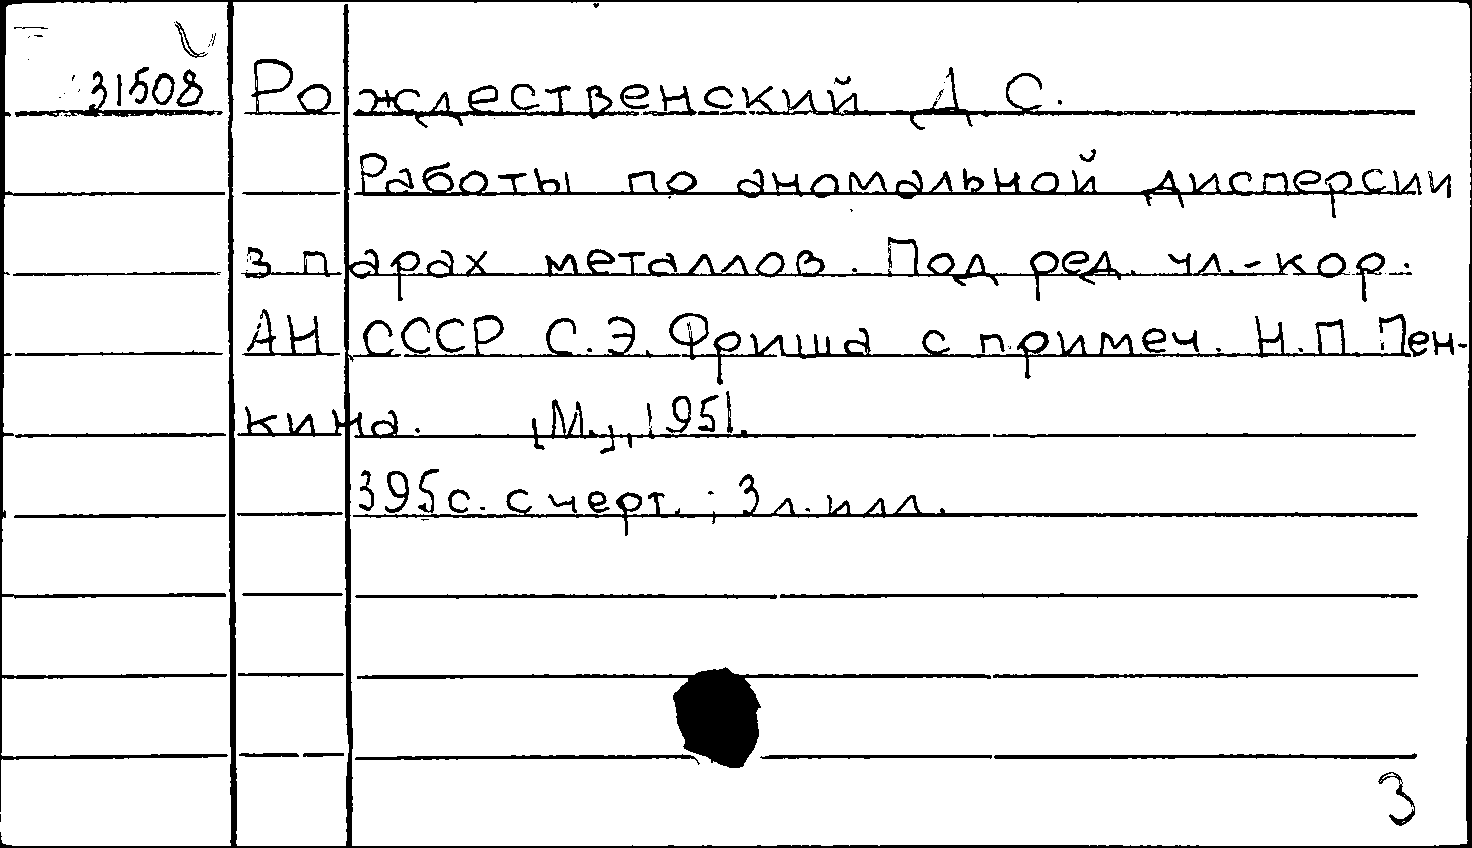 31508 Рождественский Д. С.
Работы по аномальной дисперсии
в парах металлов. Под ред. чл.-кор.
АН СССР С.Э. Фриша с примеч. Н.П. Пен-
кина. [М.], 1951.
395 с. с черт.; 3 л. илл.
3